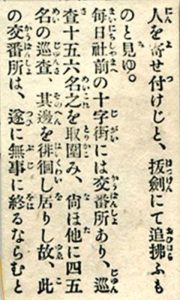 人を寄せ付けじと、抜劍にて追拂ふも
のと見ゆ。
毎日社前の十字街には交番所あり、巡
査十五六名之を取圍み、尙ほ他に四五
名の巡査、其邊を徘徊し居りし故、此
の交番所は、遂に無事に終るならむと